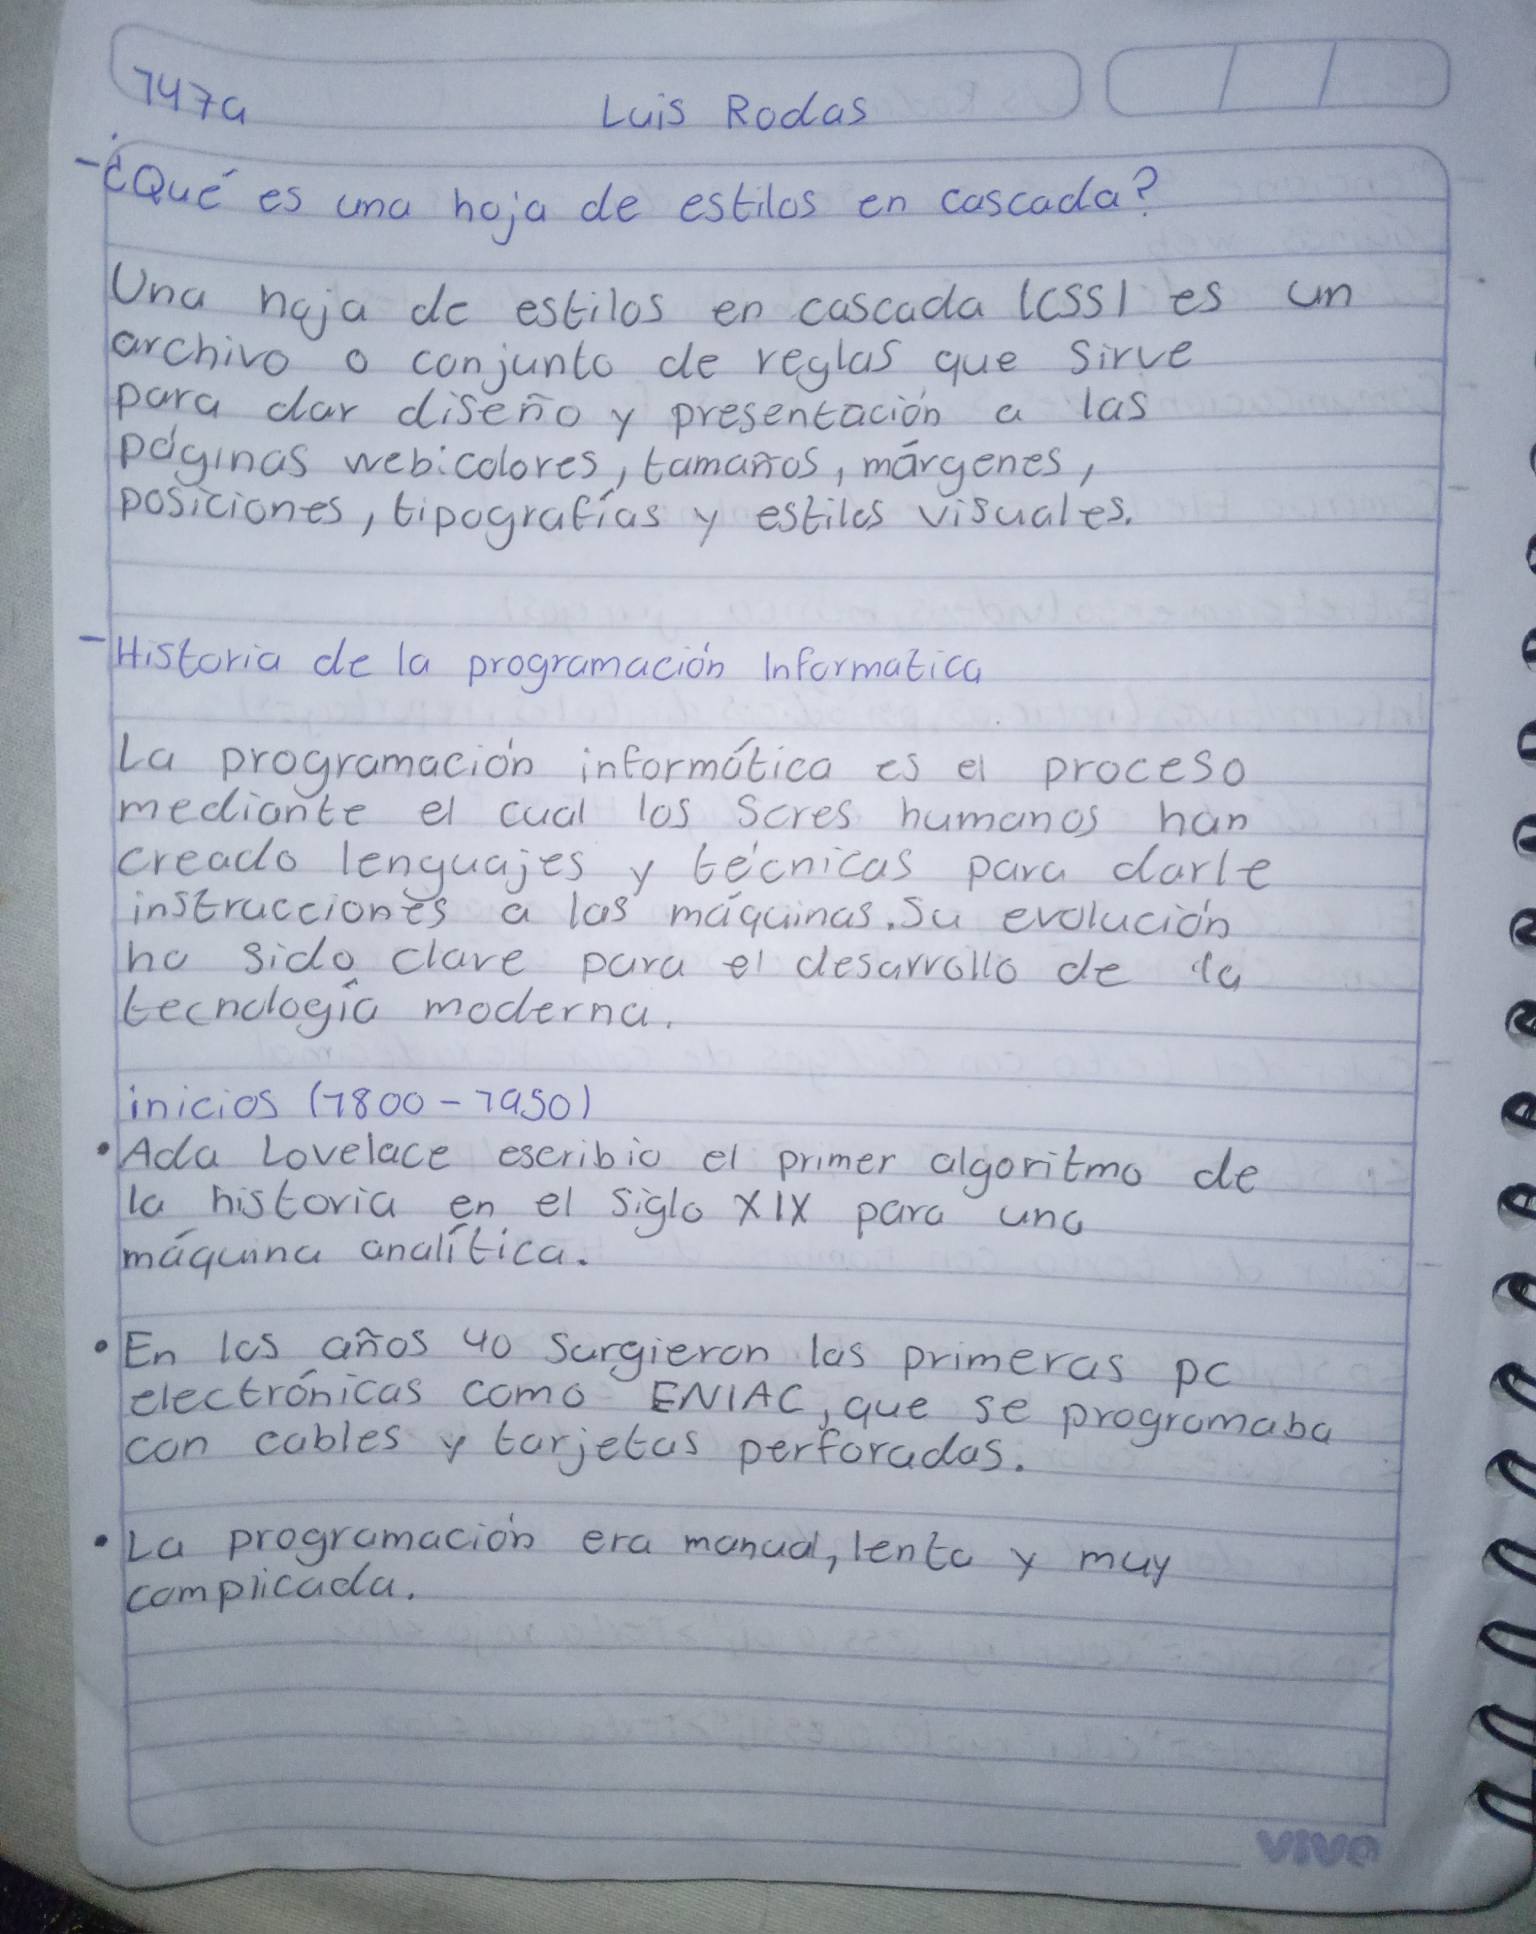 1479
Luis Rodas
- ¿Qué es una hoja de estilos en cascada?
Una hoja de estilos en cascada (CSS) es un
archivo o conjunto de reglas que sirve
para dar diseño y presentación a las
páginas web: colores, tamaños, márgenes,
posiciones, tipografías y estilos visuales.
- Historia de la programación Informatica
La programación informática es el proceso
mediante el cual los Seres humanos han
creado lenguajes y técnicas para darle
instrucciones a las máquinas. Su evolución
ha sido clave para el desarrollo de la
tecnología moderna.
inicios (1800-1950)
• Ada Lovelace escribio el primer algoritmo de
la historia en el siglo XIX para una
máquina analítica.
• En los años 40 surgieron las primeras pc
electrónicas como ENIAC, que se programaba
con cables y tarjetas perforadas.
• La programación era manual, lenta y muy
complicada.
vivo